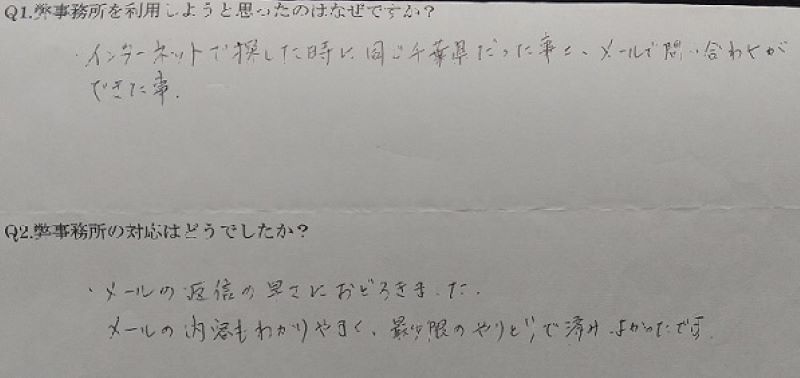 Q1.弊事務所を利用しようと思ったのはなぜですか?
・インターネットで探した時に同じ千葉県だった事と、メールで問い合わせが
できた事.
Q2.弊事務所の対応はどうでしたか?
・メールの返信の早さにおどろきました.
メールの内容もわかりやすく、最少限のやりとりで済みよかったです.